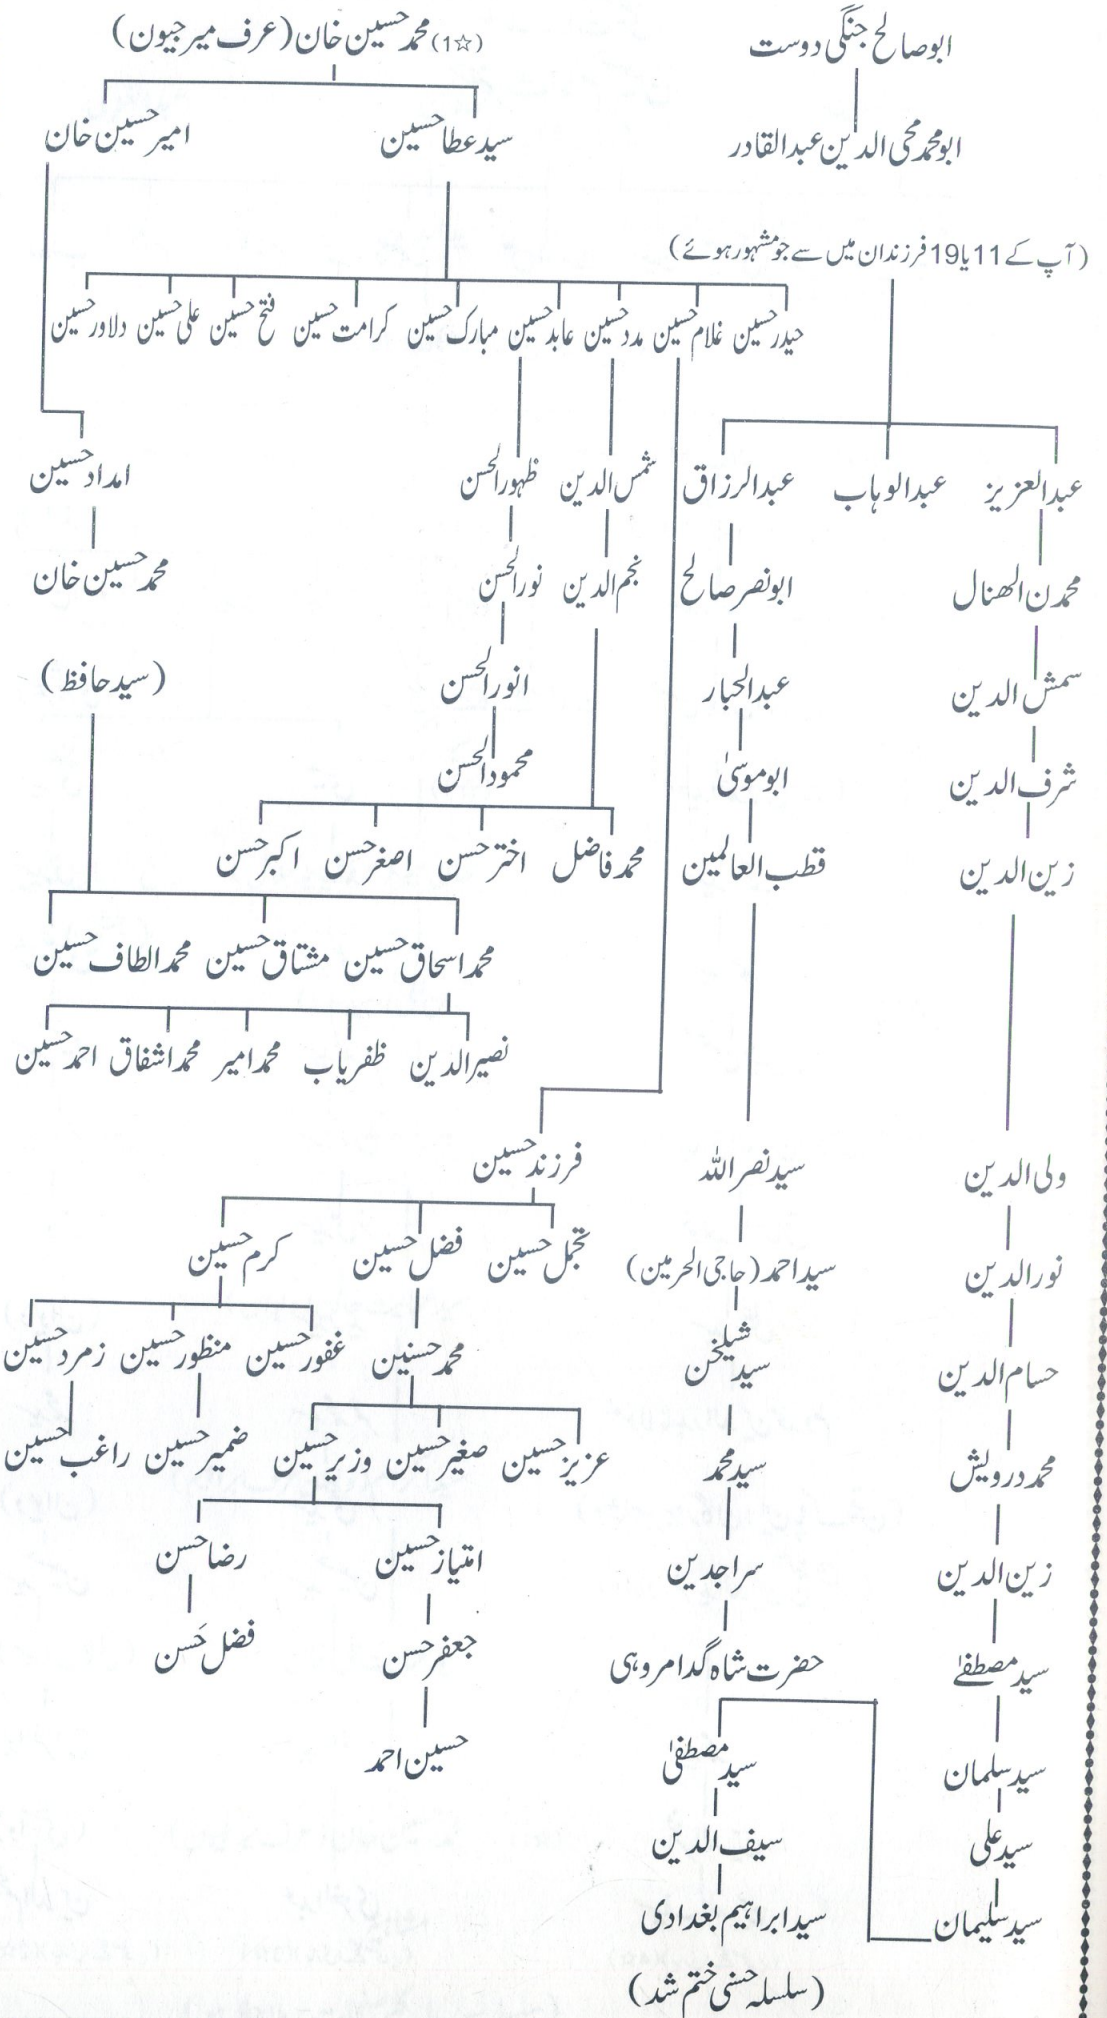 ابوصالح جنگی دوست
ابومحمد محی الدین عبدالقادر
(آپ کے 11 یا 19 فرزندان میں سے جو مشہور ہوئے)
عبدالعزیز عبدالوہاب عبدالرزاق
محمدن الھنال
سمش الدین
شرف الدین
زین الدین
ولی الدین
نورالدین
حسام الدین
محمد درویش
زین الدین
سید مصطفےٰ
سید سلمان
سید علی
سید سلیمان
ابونصر صالح
عبدالجبار
ابوموسیٰ
قطب العالمین
سید نصر اللہ
سید احمد (حاجی الحرمین)
سید
سید محمد
سراجدین
حضرت شاہ گدا امروہی
سید مصطفیٰ
سیف الدین
سید ابراہیم بغدادی
(سلسلہ حسنی ختم شد)
(☆1) محمد حسین خان (عرف میر جیون)
سید عطا حسین امیر حسین خان
حیدر حسین غلام حسین مدد حسین عابد حسین مبارک حسین کرامت حسین فتح حسین علی حسین دلاور حسین
شمس الدین
نجم الدین
محمد فاضل اختر حسن اصغر حسن اکبر حسن
ظہور الحسن
نور الحسن
انور الحسن
محمود الحسن
امداد حسین
محمد حسین خان
(سید حافظ)
محمد اسحاق حسین مشتاق حسین محمد الطاف حسین
نصیر الدین ظفریاب محمد امیر محمد اشفاق احمد حسین
فرزند حسین
تجمل حسین فضل حسین کرم حسین
محمد حسنین غفور حسین منظور حسین زمرد حسین
عزیز حسین صغیر حسین وزیر حسین ضمیر حسین راغب حسین
امتیاز حسین رضا حسن
جعفر حسن فضل حَسن
حسین احمد